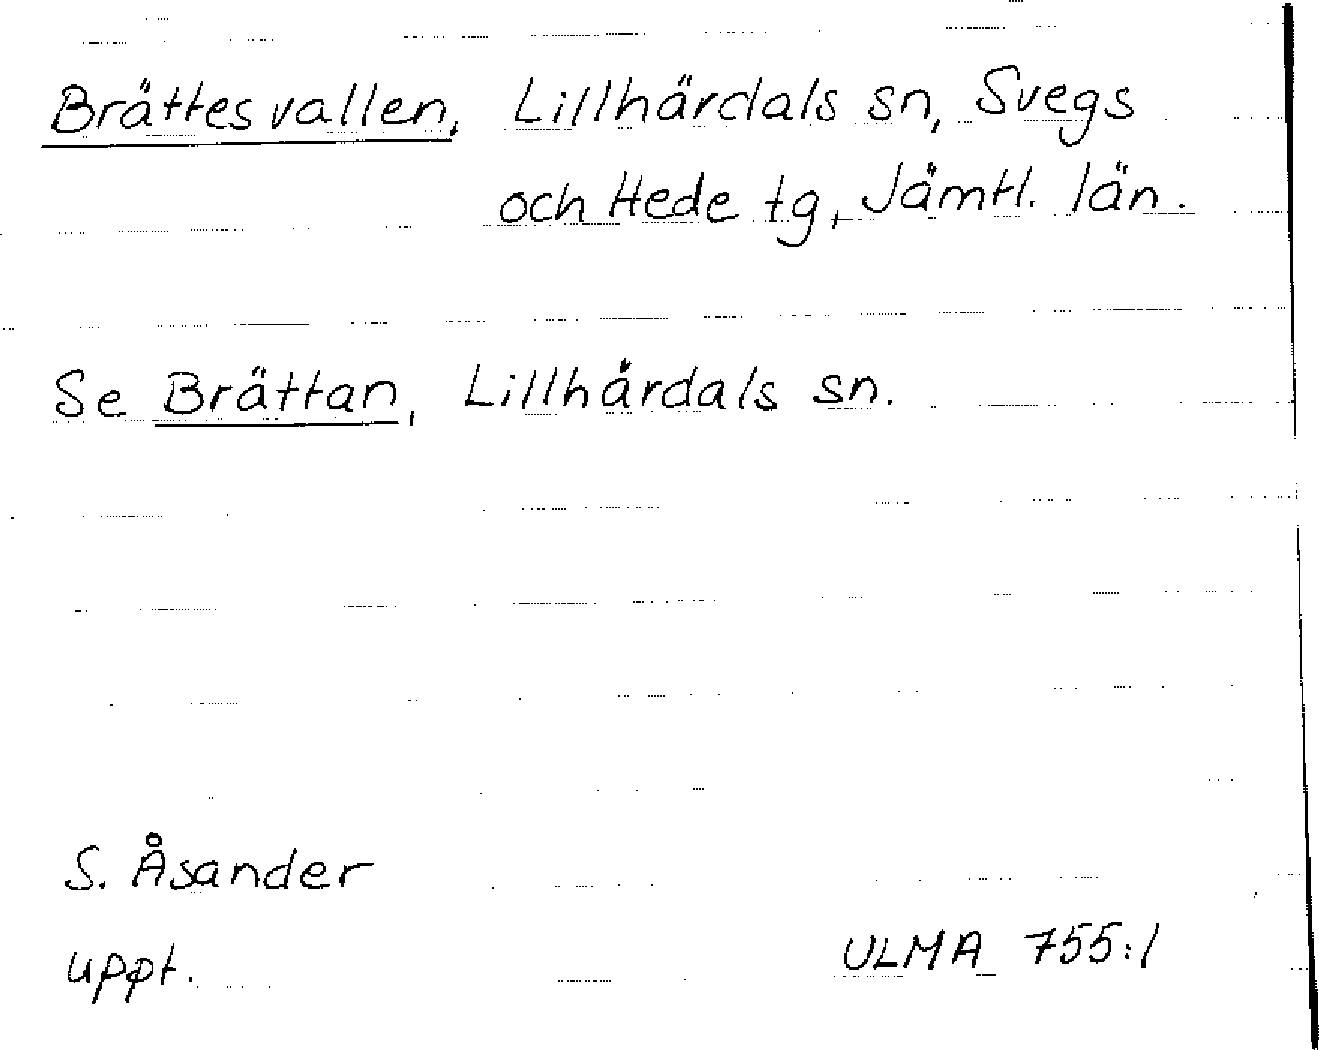 Brättesvallen, Lillhärdals sn, Svegs
och Hede tg, Jämtl. län.
Se Brättan, Lillhärdals sn.
S. Åsander
uppt.
ULMA 755:1